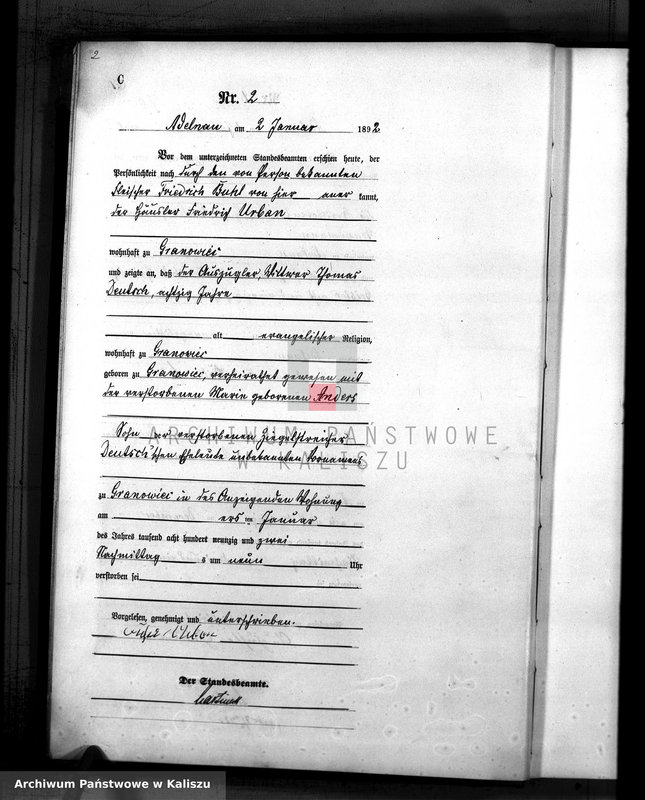 2
C
Nr. 2
Adelnau am 2 Januar 1892
Vor dem unterzeichneten Standesbeamten erschien heute, der
Persönlichkeit nach durch den von Person bekannten
Fleischer Friedrich von hier aner kannt,
der Häusler Friedrich Urban
wohnhaft zu Granowiec
und zeigte an, daß der Auszügler, Wittwer Thomas
Deutsch, achtzig Jahre
alt evangelischer Religion,
wohnhaft zu Granowiec
geboren zu Granowiec, verheirathet gewesen mit
der verstorbenen Marie geborenen Anders
Sohn der verstorbenen Ziegelstreicher
Deutsch'schen Eheleute unbekannten Vornamens
zu Granowiec in des Anzeigenden Wohnung
am ersten Januar
des Jahres tausend acht hundert neunzig und zwei
Nachmittag s um neun Uhr
verstorben sei
Vorgelesen, genehmigt und unterschrieben.
Urban
Der Standesbeamte.
ARCHIWUM PAŃSTWOWE
W KALISZU
Archiwum Państwowe w Kaliszu